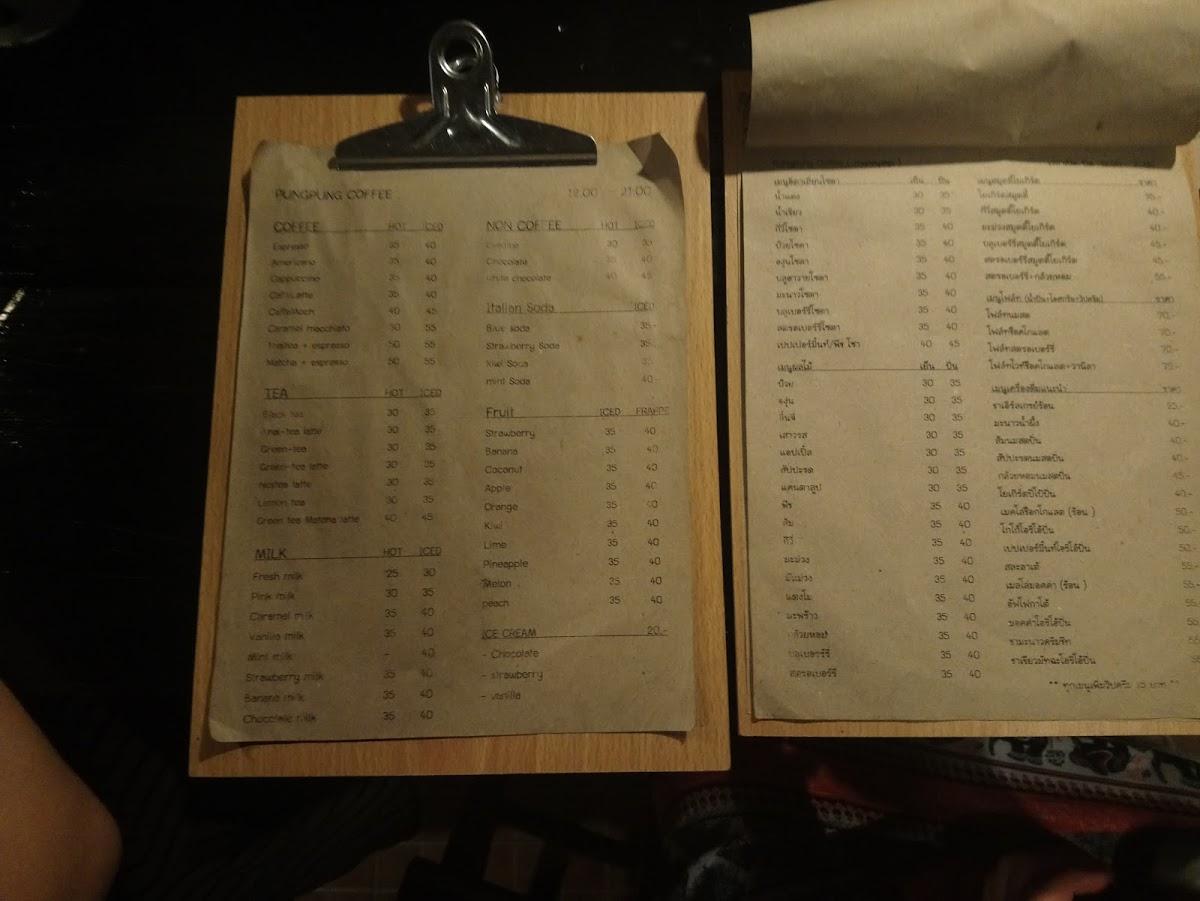 PUNGPUNG COFFEE 12.00 - 21.00
COFFEE HOT ICED
Espresso 35 40
Americano 35 40
Cappuccino 35 40
Caffe Latte 35 40
CaffeMoch 40 45
Caramel macchiato 50 55
Thaitea + espresso 50 55
Matcha + espresso 50 55
TEA HOT ICED
Black tea 30 35
Thai-tea latte 30 35
Green-tea 30 35
Green-tea latte 30 35
latte 30 35
Lemon tea 30 35
Green tea Matcha latte 40 45
MILK HOT ICED
Fresh milk 25 30
Pink milk 30 35
Caramel milk 35 40
Vanilla milk 35 40
Mint milk - 40
Strawberry milk 35 40
Banana milk 35 40
Chocolate milk 35 40
NON COFFEE HOT ICED
30 35
Chocolate 35 40
white chocolate 40 45
Italian Soda ICED
Blue soda 35.-
Strawberry Soda 35.-
Kiwi Soda 35.-
mint Soda 40.-
Fruit ICED FRAPPE
Strawberry 35 40
Banana 35 40
Coconut 35 40
Apple 35 40
Orange 35 40
Kiwi 35 40
Lime 35 40
Pineapple 35 40
Melon 35 40
peach 35 40
ICE CREAM 20.-
- Chocolate
- strawberry
- vanilla
เมนูอิตาเลียนโซดา เย็น ปั่น
น้ำแดง 30 35
น้ำเขียว 30 35
กีวี่โซดา 35 40
บ๊วยโซดา 35 40
องุ่นโซดา 35 40
บลูฮาวายโซดา 35 40
มะนาวโซดา 35 40
บลูเบอร์รี่โซดา 35 40
สตรอเบอร์รี่โซดา 35 40
เปปเปอร์มิ้นท์/พีช โซดา 40 45
เมนูผลไม้ เย็น ปั่น
บ๊วย 30 35
องุ่น 30 35
ลิ้นจี่ 30 35
เสาวรส 30 35
แอปเปิ้ล 30 35
สัปปะรด 30 35
แคนตาลูป 30 35
พีช 35 40
ส้ม 35 40
กีวี่ 35 40
มะม่วง 35 40
35 40
แตงโม 35 40
มะพร้าว 35 40
กล้วยหอม 35 40
บลูเบอร์รี่ 35 40
สตรอเบอร์รี่ 35 40
เมนูสมูตตี้โยเกิร์ต ราคา
โยเกิร์ตสมูตตี้ 35.-
กีวี่สมูตตี้โยเกิร์ต 40.-
มะม่วงสมูตตี้โยเกิร์ต 40.-
บลูเบอร์รี่สมูตตี้โยเกิร์ต 45.-
สตรอเบอร์รี่สมูตตี้โยเกิร์ต 45.-
สตรอเบอร์รี่+กล้วยหอม 55.-
เมนูโฟล์ท (น้ำปั่น+ไอศกรีม+วิปครีม) ราคา
โฟล์ทนมสด 70.-
โฟล์ทช็อคโกแลต 70.-
โฟล์ทสตรอเบอร์รี่ 70.-
โฟล์ทไวท์ช็อคโกแลต+วานิลา 75.-
เมนูเครื่องดื่มแนะนำ ราคา
ชาเอิร์ลเกรย์ร้อน 25.-
มะนาวน้ำผึ้ง 40.-
ส้มนมสดปั่น 40.-
สัปปะรดนมสดปั่น 40.-
กล้วยหอมนมสดปั่น 45.-
โยเกิร์ตปีโป้ปั่น 40.-
เมคไลช็อกโกแลต (ร้อน) 50.-
โกโก้โอรีโอ้ปั่น 50.-
เปปเปอร์มิ้นท์โอรีโอ้ปั่น 50.-
สละลาเต้ 55.-
เมลโล่มอคค่า (ร้อน) 55.-
อัฟโฟกาโต้ 55.-
มอคค่าโอรีโอ้ปั่น 55.-
ชามะนาวครัมรีท 55
ชาเขียวมัทฉะโอรีโอ้ปั่น 55
** ทุกเมนูเพิ่มวิปครีม 15 บาท **